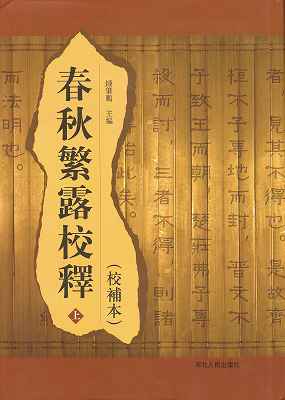 春秋繁露校釋
上
（校補本）
鍾肇鵬 主編
者見其不得 是故齊
桓不予專地而封 晉文不
予致王而朝 楚莊弗予專
殺而討 三者不得 則諸
殆此矣。
而法明也。
河北人民出版社